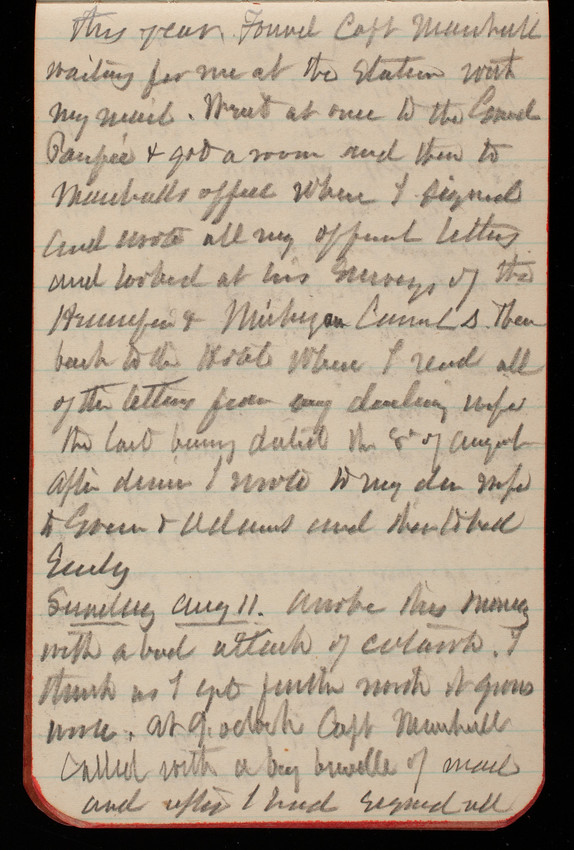 this year. Found Capt Marshall
waiting for me at the Station with
my mail. Went at once to the Grand
Pacific & got a room and then to
Marshalls office where I signed
and wrote all my official letters
and looked at his Surveys of the
Hennepin & Michigan Canals then
back to the Hotel where I read all
of the letters from my darling wife
the last being dated the 8" of August
after dinner I wrote to my dear wife
to Green & Adams and then to bed
Early
Sunday Aug 11. Awoke this morning
with a bad attack of catarrh. I
think as I get further north it grows
worse. At 9 oclock Capt Marshall
called with a big bundle of mail
and after I had signed all